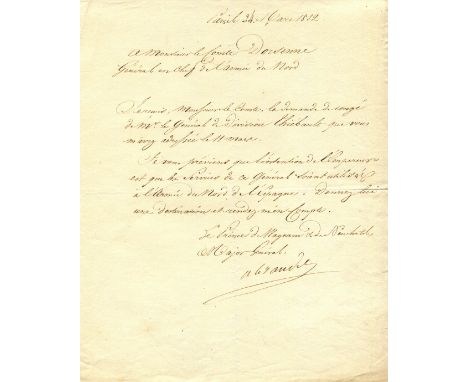 Paris le 24 Mars 1812
A Monsieur le Comte Dorsenne
Général en Chef de l'Armée du Nord
Je reçois, Monsieur le Comte, la demande de congé
de Mr. le Général de Division Thiebault que vous
m'avez adressée le 11 mars.
Je vous préviens que l'intention de l'Empereur
est que les services de ce Général soient utilisés
à l'Armée du Nord de l'Espagne. Donnez lui
une destination et rendez m'en Compte.
Le Prince de Wagram et de Neuchatel
Major Général
Alexandre